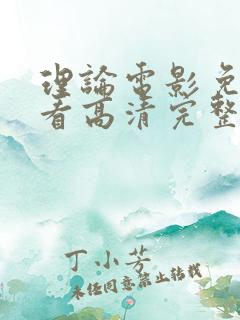 理論電影免
看高清完整
丁小芳
未经同意禁止转载